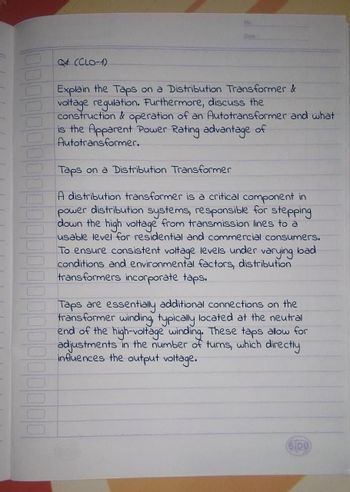 Q4 (CLO-1)
Explain the Taps on a Distribution Transformer &
voltage regulation. Furthermore, discuss the
construction & operation of an Autotransformer and what
is the Apparent Power Rating advantage of
Autotransformer.
Taps on a Distribution Transformer
A distribution transformer is a critical component in
power distribution systems, responsible for stepping
down the high voltage from transmission lines to a
usable level for residential and commercial consumers.
To ensure consistent voltage levels under varying load
conditions and environmental factors, distribution
transformers incorporate taps.
Taps are essentially additional connections on the
transformer winding, typically located at the neutral
end of the high-voltage winding. These taps allow for
adjustments in the number of turns, which directly
influences the output voltage.